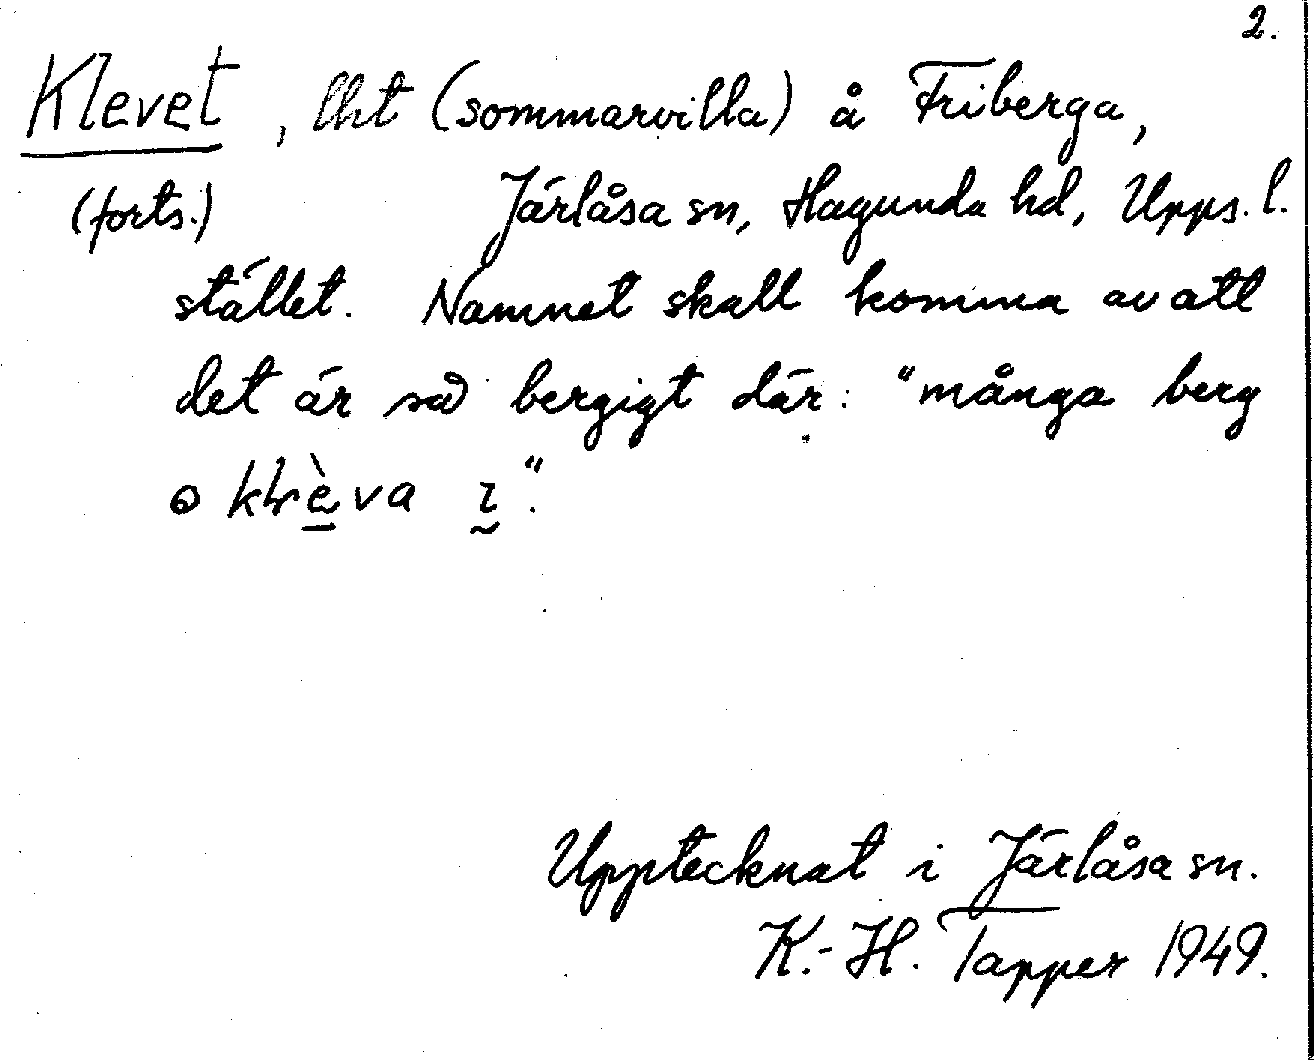 2.
Klevet, lht (sommarvilla) å Friberga,
(forts.) Järlåsa sn, Hagunda hd, Upps. l.
stället. Namnet skall komma av att
det är så bergigt där: "många berg
o klèva ı̰".
Upptecknat i Järlåsa sn.
K.-H. Tapper 1949.